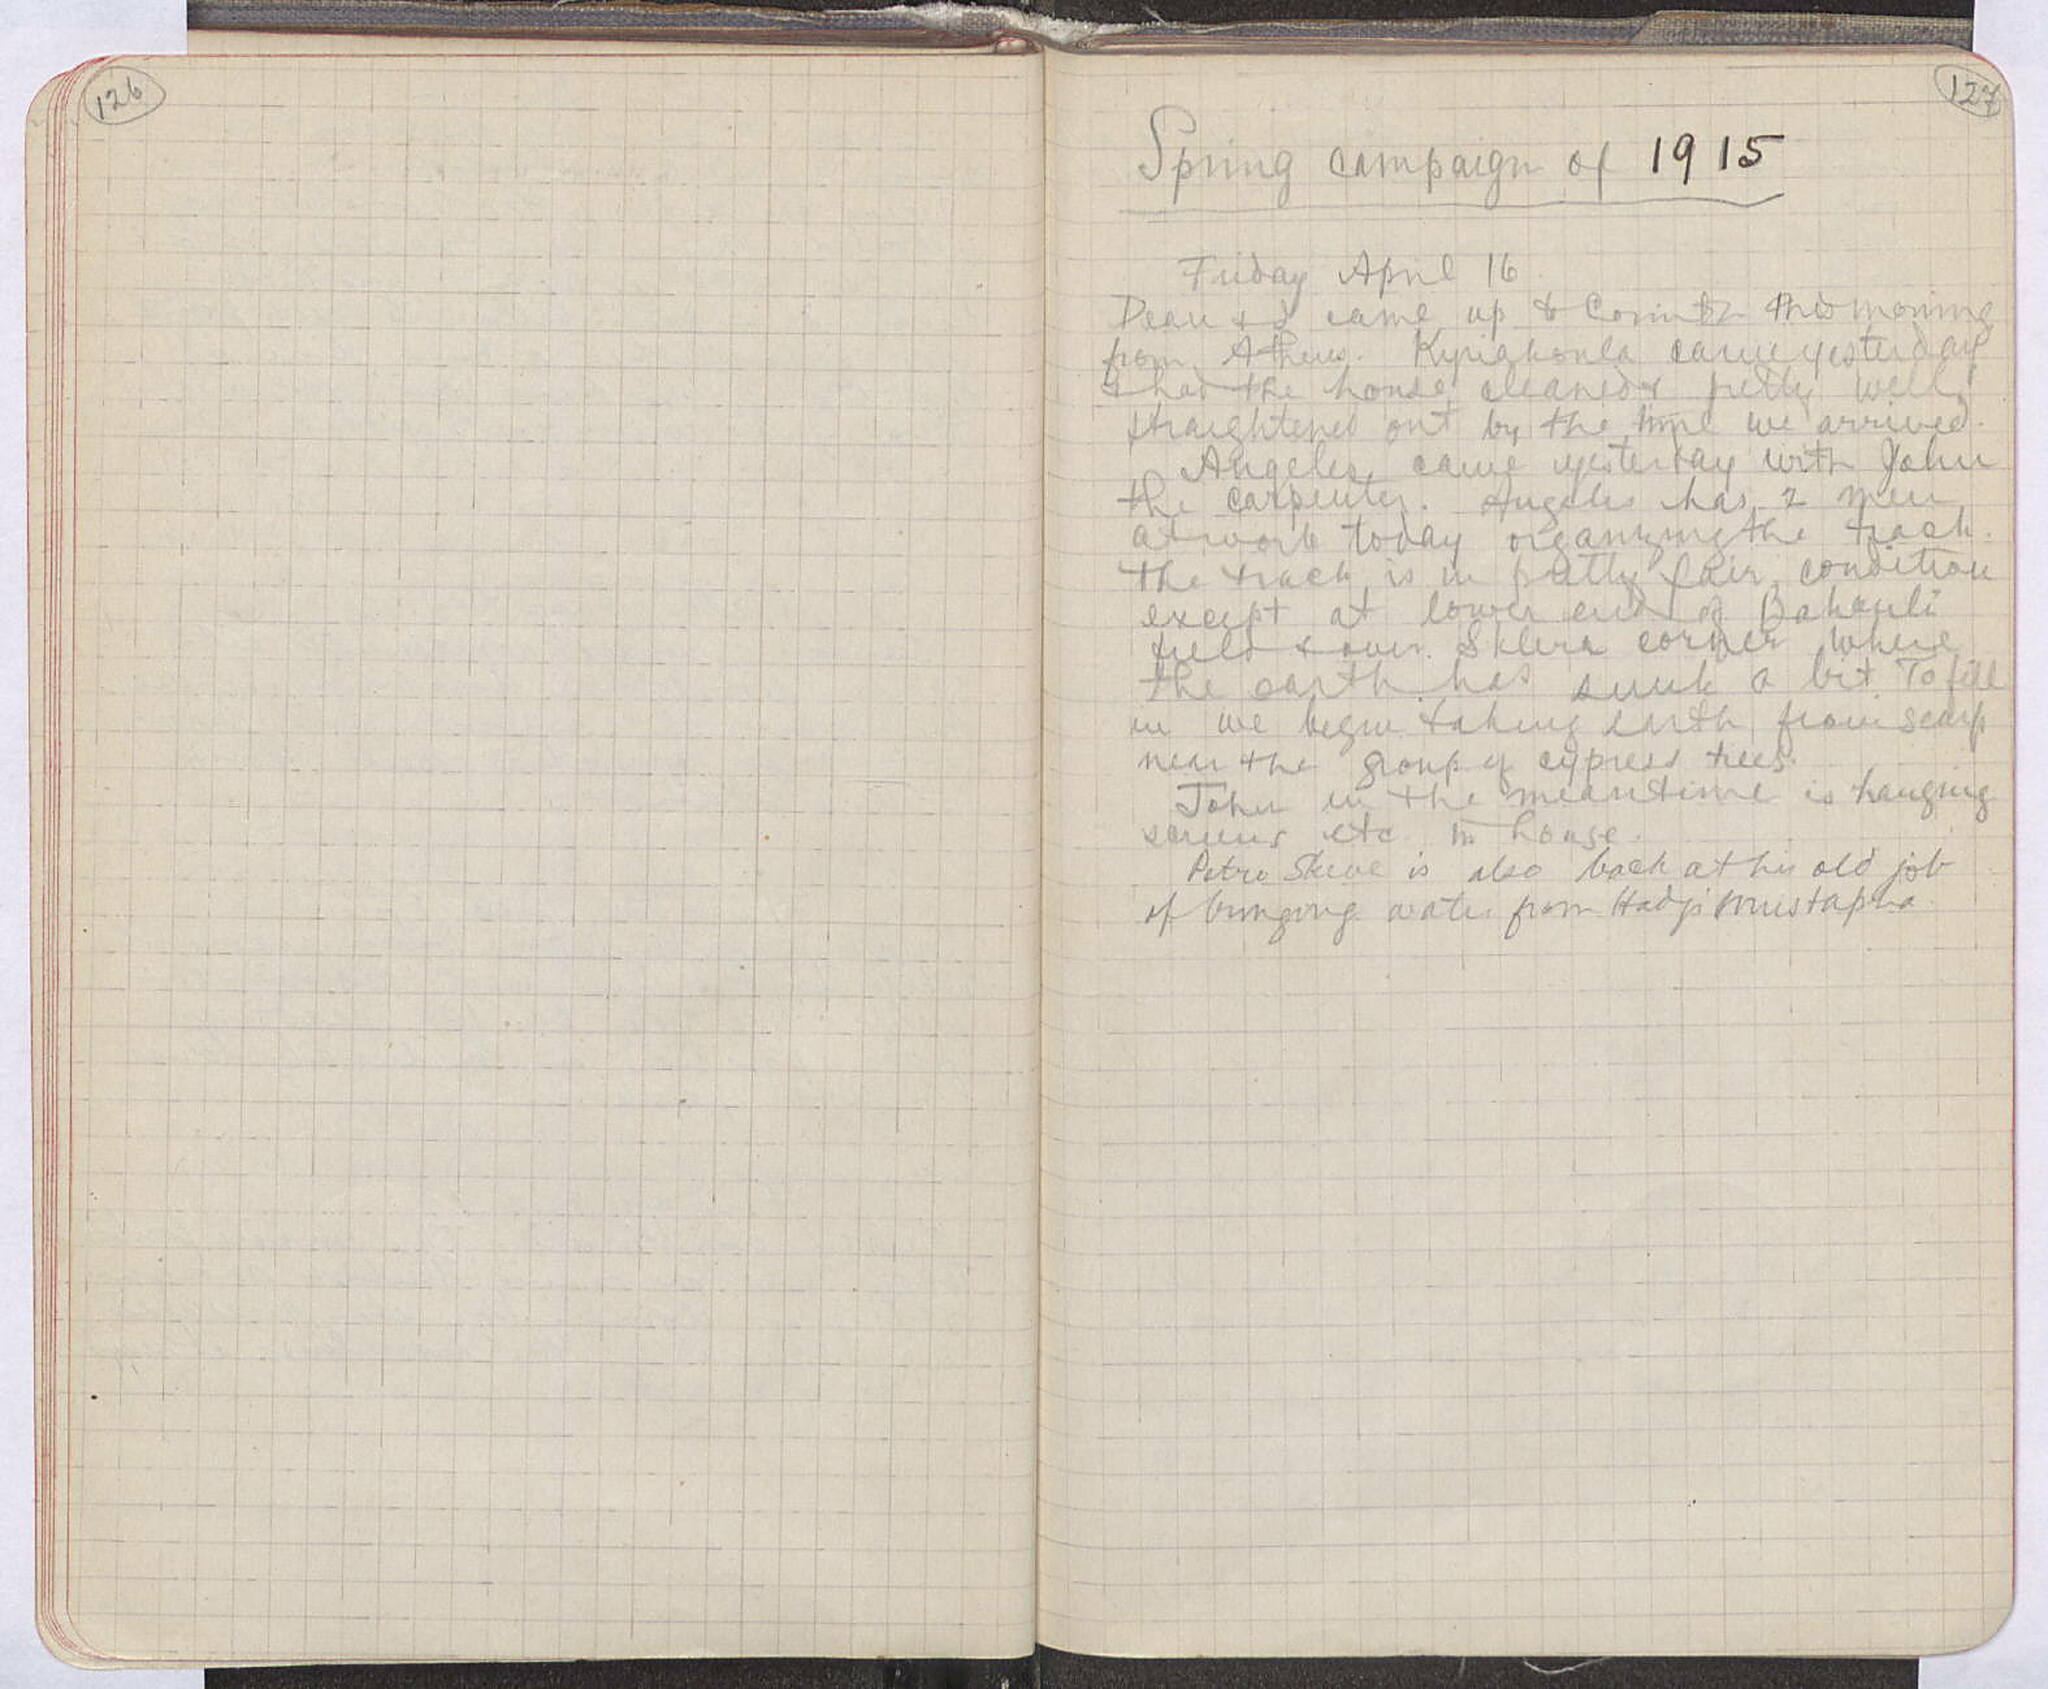 126
127
Spring campaign of 1915
Friday April 16
Dean & I came up to Corinth this morning
from Athens. Kyriakoula came yesterday
& had the house cleaned & pretty well
straightened out by the time we arrived.
Angelis came yesterday with John
the carpenter. Angelis has 2 men
at work today organizing the track.
The track is in pretty fair condition
except at lower end of Bakouli
field & over Sklera corner where
the earth has sunk a bit. To fill
in we begin taking earth from scarp
near the group of cypress trees.
John in the meantime is hanging
screens etc in house.
Petro Skeve is also back at his old job
of bringing water from Hadji Mustapha.